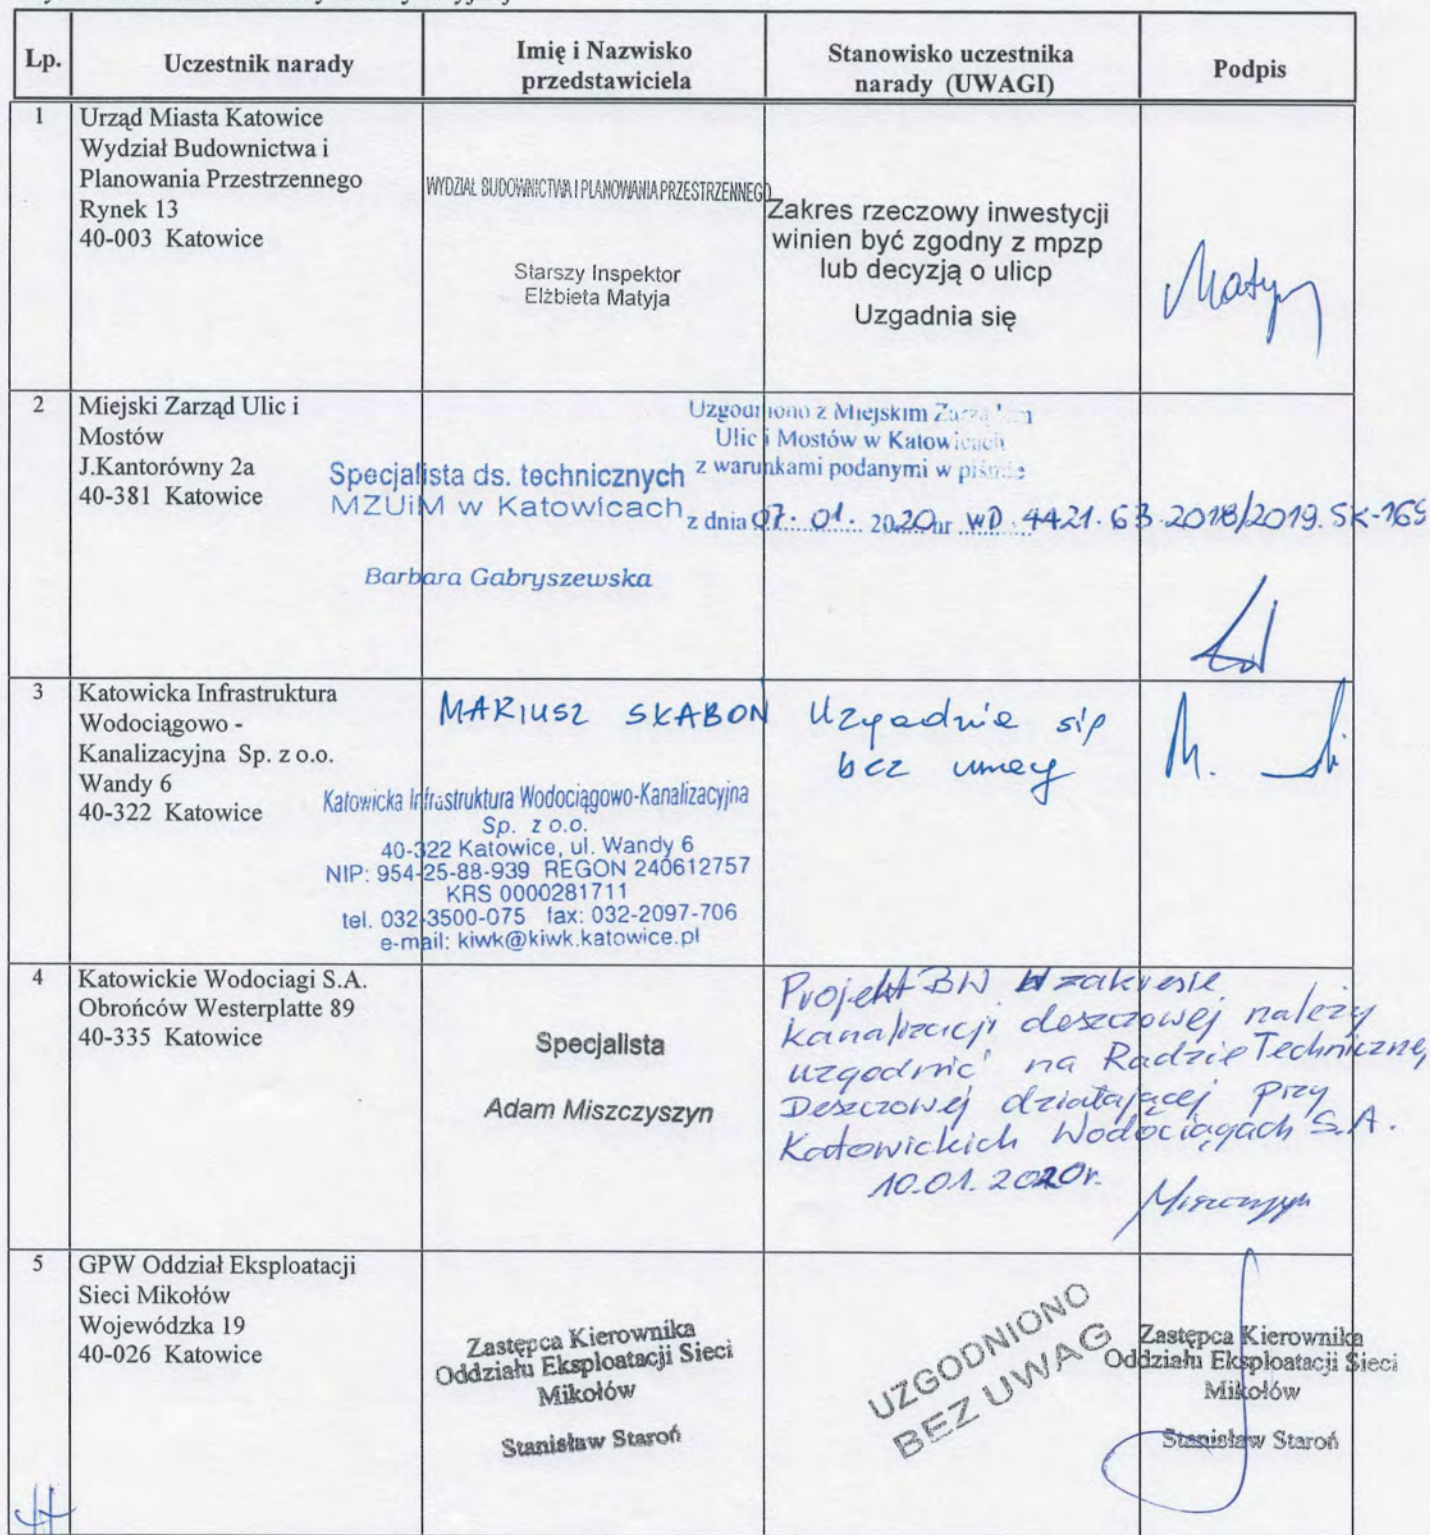 Lp.
Uczestnik narady
Imię i Nazwisko
przedstawiciela
Stanowisko uczestnika
narady (UWAGI)
Podpis
1
Urząd Miasta Katowice
Wydział Budownictwa i
Planowania Przestrzennego
Rynek 13
40-003 Katowice
WYDZIAŁ BUDOWNICTWA I PLANOWANIA PRZESTRZENNEGO
Starszy Inspektor
Elżbieta Matyja
Zakres rzeczowy inwestycji
winien być zgodny z mpzp
lub decyzją o ulicp
Uzgadnia się
2
Miejski Zarząd Ulic i
Mostów
J.Kantorówny 2a
40-381 Katowice
Specjalista ds. technicznych
MZUiM w Katowicach
Barbara Gabryszewska
Uzgodniono z Miejskim Zarządem
Ulic i Mostów w Katowicach
z warunkami podanymi w piśmie
z dnia 07. 01. 2020 nr WD. 4421. 63. 2018/2019. SK-165
3
Katowicka Infrastruktura
Wodociągowo -
Kanalizacyjna Sp. z o.o.
Wandy 6
40-322 Katowice
MARIUSZ SKABON
Katowicka Infrastruktura Wodociągowo-Kanalizacyjna
Sp. z o.o.
40-322 Katowice, ul. Wandy 6
NIP: 954-25-88-939 REGON 240612757
KRS 0000281711
tel. 032-3500-075 fax: 032-2097-706
e-mail: kiwk@kiwk.katowice.pl
Uzgadnia się
bez uwag
M.
4
Katowickie Wodociagi S.A.
Obrońców Westerplatte 89
40-335 Katowice
Specjalista
Adam Miszczyszyn
Projekt BN W zakresie
kanalizacji deszczowej należy
uzgodnić na Radzie Technicznej
Deszczowej działającej przy
Katowickich Wodociągach S.A.
10.01.2020r.
5
GPW Oddział Eksploatacji
Sieci Mikołów
Wojewódzka 19
40-026 Katowice
Zastępca Kierownika
Oddziału Eksploatacji Sieci
Mikołów
Stanisław Staroń
UZGODNIONO
BEZ UWAG
Zastępca Kierownika
Oddziału Eksploatacji Sieci
Mikołów
Stanisław Staroń